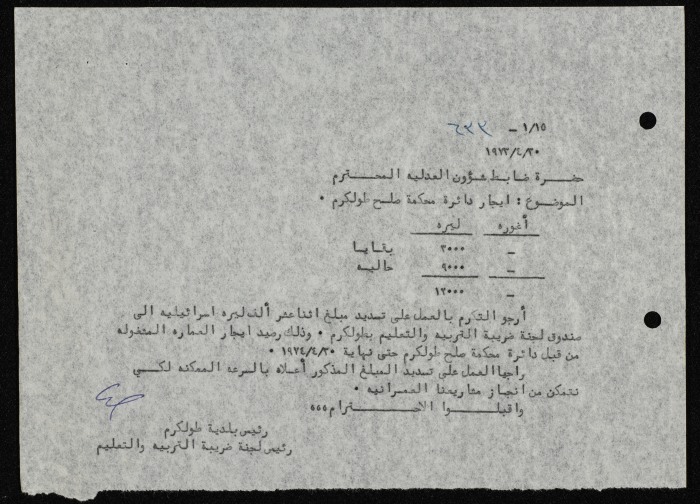 ١/١٥ – ٦٣٣
١٩٧٣/٤/٣٠
حضرة ضابط شؤون العدليه المحترم
الموضوع : ايجار دائرة محكمة صلح طولكرم .
أغوره ليره
– ٣٠٠٠ بقايا
– ٩٠٠٠ حاليه
– ١٢٠٠٠
أرجو التكرم بالعمل على تسديد مبلغ اثنا عشر ألف ليره اسرائيليه الى
صندوق لجنة ضريبة التربيه والتعليم بطولكرم . وذلك رصيد ايجار العماره المشغوله
من قبل دائرة محكمة صلح طولكرم حتى نهاية ١٩٧٤/٤/٣٠ .
راجيا العمل على تسديد المبلغ المذكور أعلاه بالسرعه الممكنه لكي
نتمكن من انجاز مشاريعنا العمرانيه .
واقبلوا الاحترام ٥٥٥
رئيس بلدية طولكرم
رئيس لجنة ضريبة التربيه والتعليم